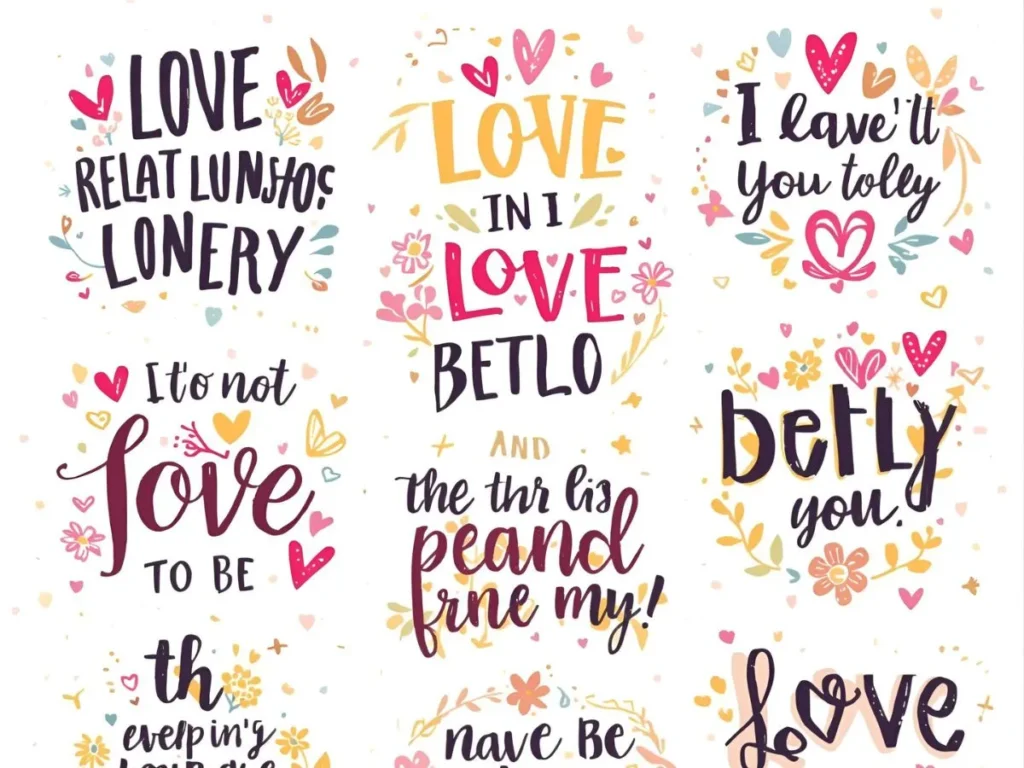 LOVE
RELAT
LONERY
It'o not
love
TO BE
th
evelp in'g
LOVE
IN I
LOVE
BETLO
AND
the thr lis
peand
frne my!
nave Be
I lave'lt
you tolly
betly
you.
Love